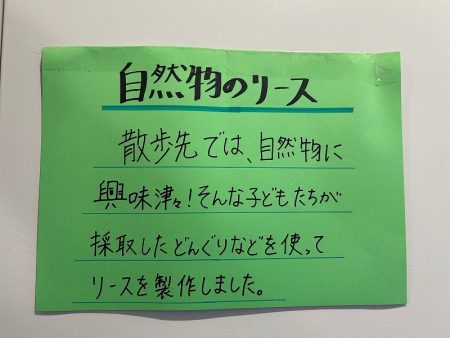 自然物のリース
散歩先では、自然物に
興味津々！そんな子どもたちが
採取したどんぐりなどを使って
リースを製作しました。